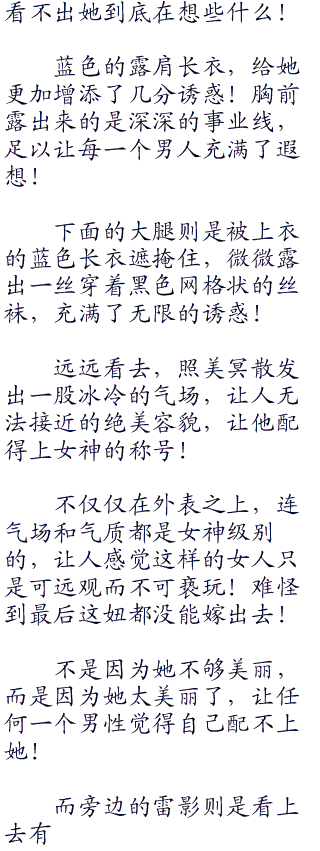 看不出她到底在想些什么！
蓝色的露肩长衣，给她
更加增添了几分诱惑！胸前
露出来的是深深的事业线，
足以让每一个男人充满了遐
想！
下面的大腿则是被上衣
的蓝色长衣遮掩住，微微露
出一丝穿着黑色网格状的丝
袜，充满了无限的诱惑！
远远看去，照美冥散发
出一股冰冷的气场，让人无
法接近的绝美容貌，让他配
得上女神的称号！
不仅仅在外表之上，连
气场和气质都是女神级别
的，让人感觉这样的女人只
是可远观而不可亵玩！难怪
到最后这妞都没能嫁出去！
不是因为她不够美丽，
而是因为她太美丽了，让任
何一个男性觉得自己配不上
她！
而旁边的雷影则是看上
去有